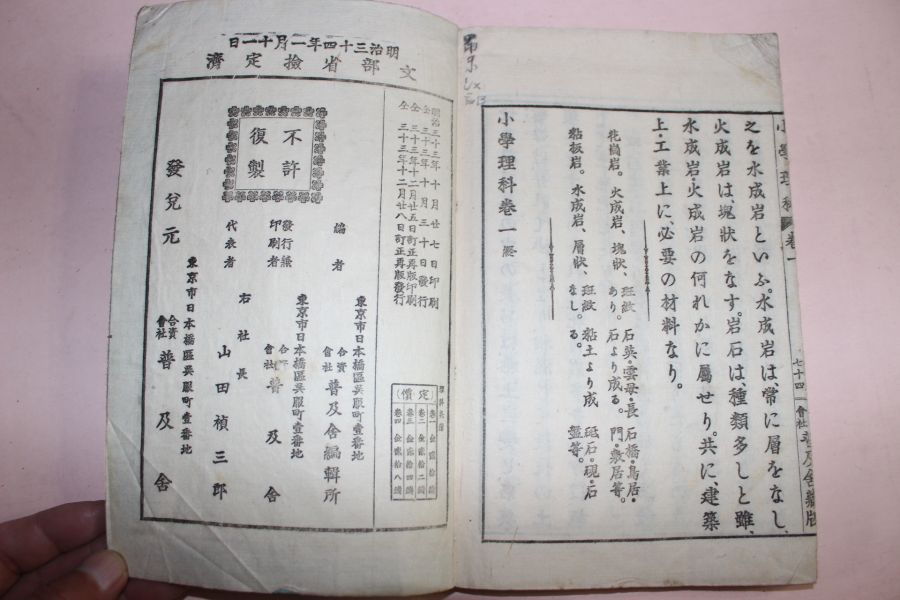 小學理科 卷一
七十四
會社 普及舍編版
之を水成岩といふ。水成岩は、常に層をなし、
火成岩は、塊狀をなす。岩石は、種類多しと雖、
水成岩・火成岩の何れかに屬せり。共に、建築
上・工業上に、必要の材料なり。
花崗岩。火成岩、塊狀、斑紋あり。石英・雲母・長石より成る。石橋・鳥居・門・敷居等。
粘板岩。水成岩、層狀、斑紋なし。粘土より成る。砥石・硯・石盤等。
小學理科卷一 終
明治三十四年一月十一日
文部省檢定濟
明治三十三年十月廿七日印刷
仝三十三年十月三十日發行
仝三十三年十二月廿五日訂正再版印刷
仝三十三年十二月廿八日訂正再版發行
定價
卷一 金貳拾錢
卷二 金貳拾二錢
卷三 金貳拾四錢
卷四 金貳拾八錢
不許復製
東京市日本橋區吳服町壹番地
編者 合資會社 普及舍編輯所
東京市日本橋區吳服町壹番地
發行兼印刷者 合資會社 普及舍
代表者 右社長 山田禎三郎
東京市日本橋區吳服町壹番地
發兌元 合資會社 普及舍